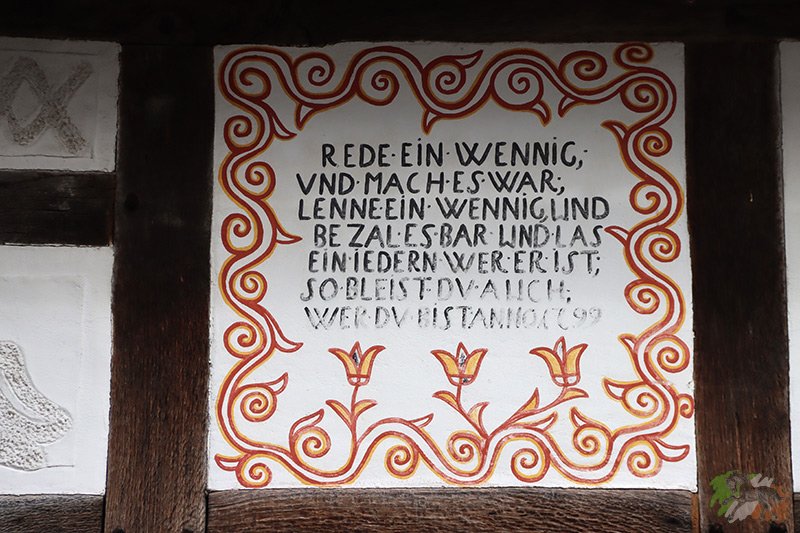 REDE·EIN·WENNIG,·
VND·MACH·ES WAR;
LENNE EIN·WENNIG, UND
BEZAL·ES·BAR UND·LAS
EIN·IEDERN·WER·ER IST;
SO·BLEIST·DV·AUCH;
WER DV·BIST ANNO,CC99